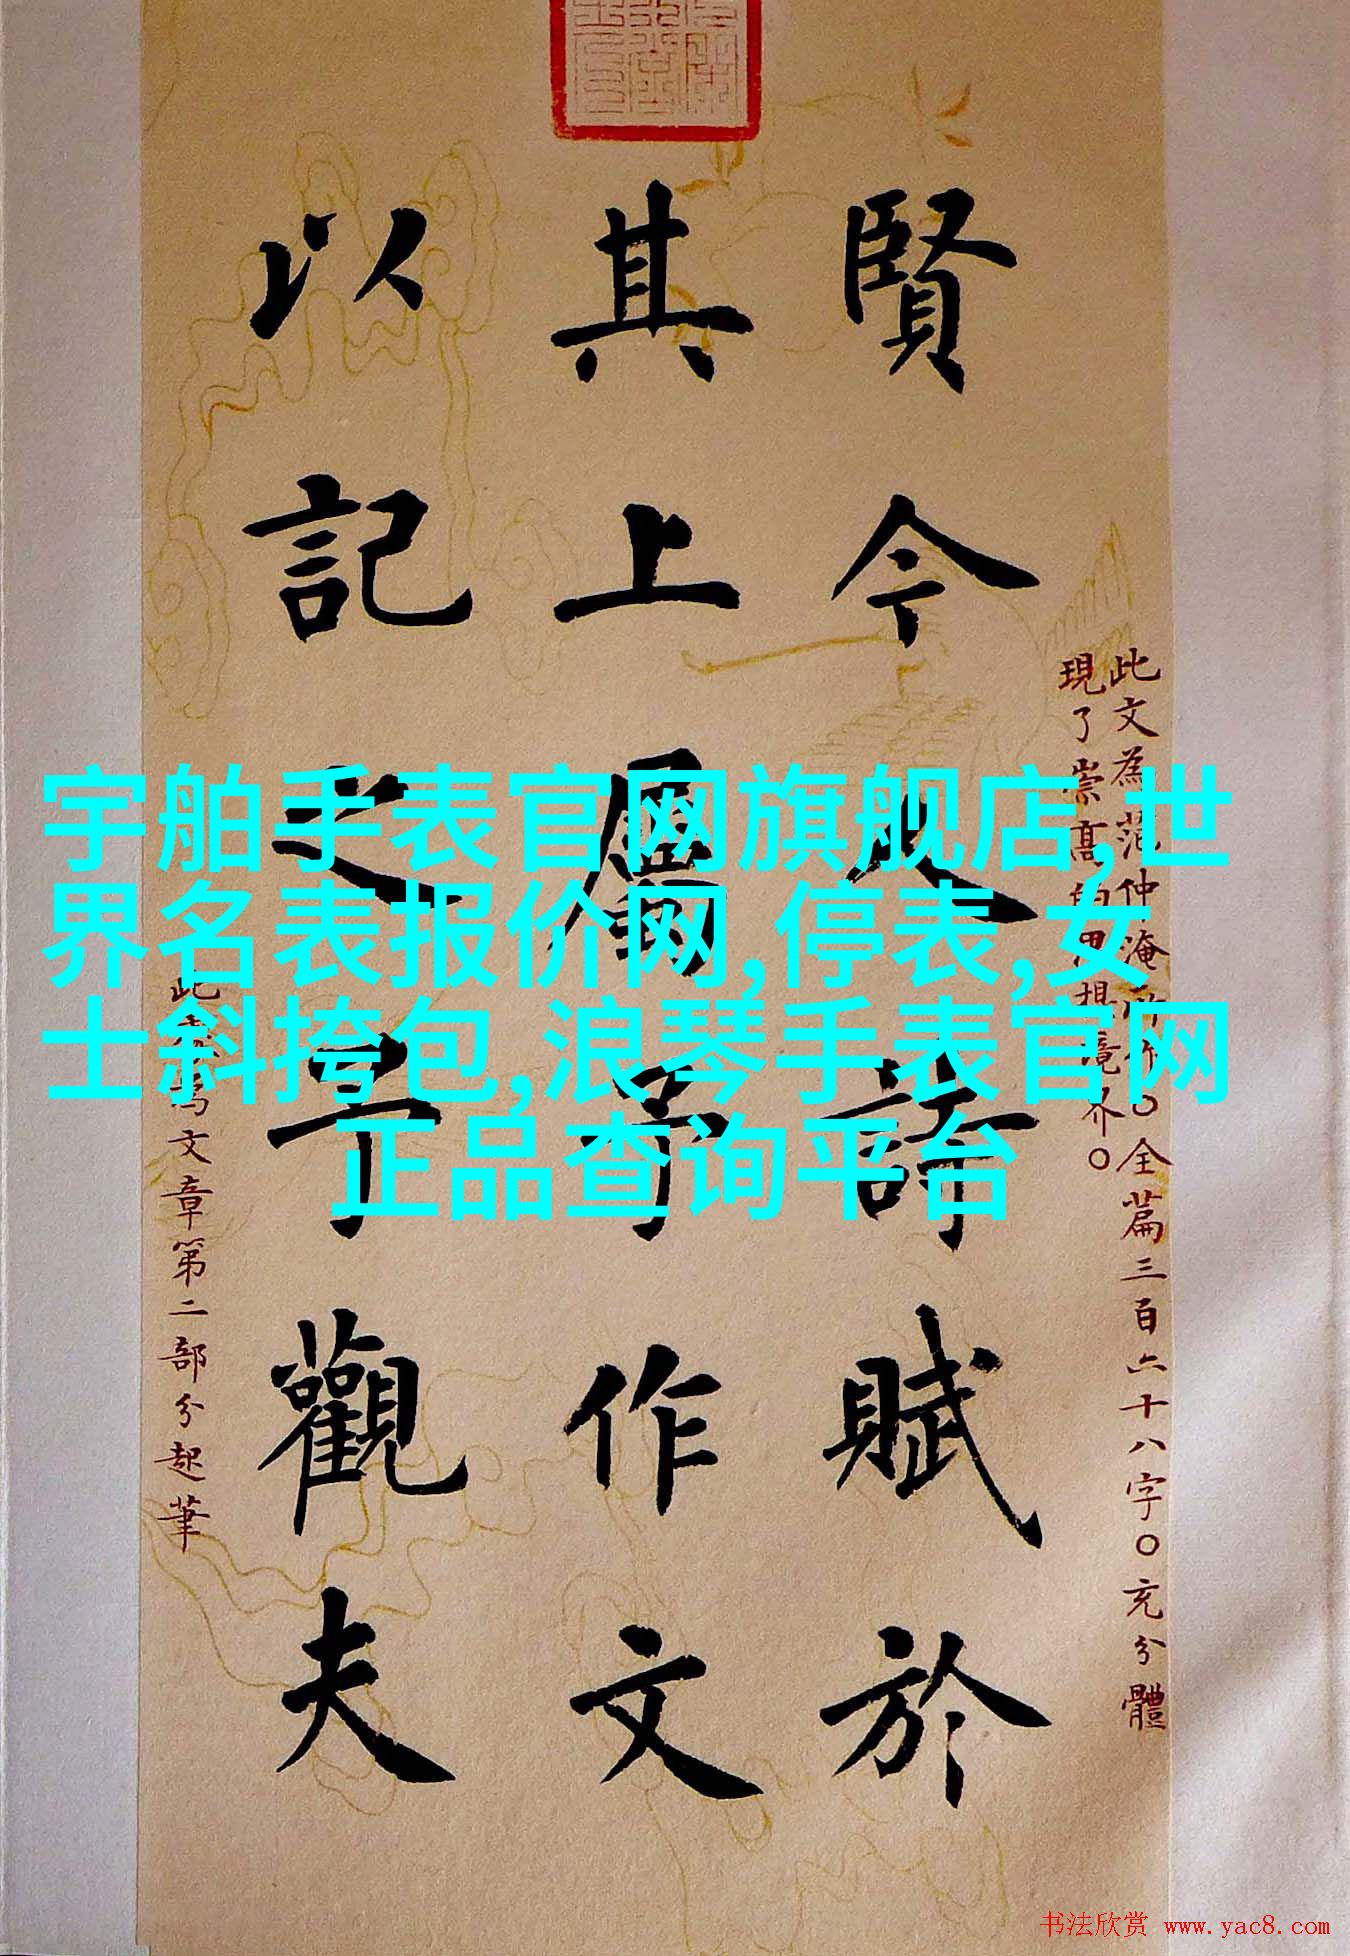 賢今人詩賦於
其上屬予作文
以記之予觀夫
此文為范仲淹所作〇全篇三百六十八字〇充分體
現了崇高的思想境界〇
文章第二部分起筆
宇舶手表官网旗舰店,世
界名表报价网,停表,女
士斜挎包,浪琴手表官网
正品查询平台
书法欣赏 www.yac8.com